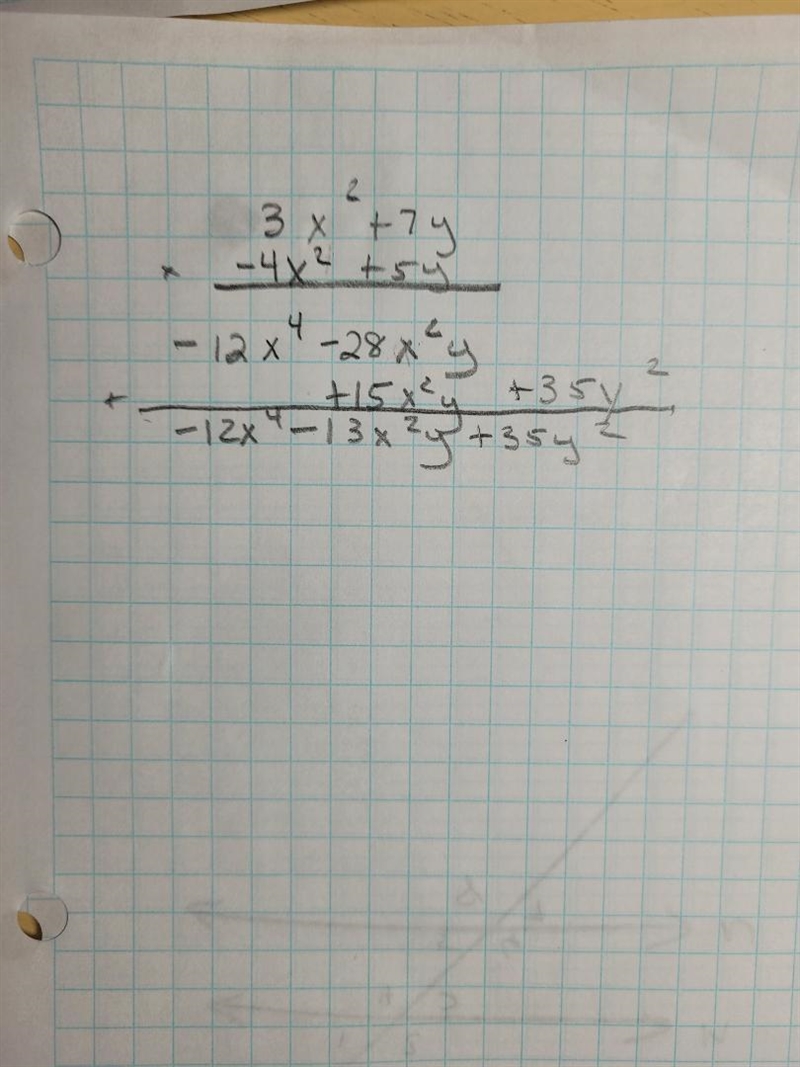 3x² + 7y
× -4x² + 5y
-12x⁴ - 28x²y
+ +15x²y + 35y²
-12x⁴ - 13x²y + 35y²